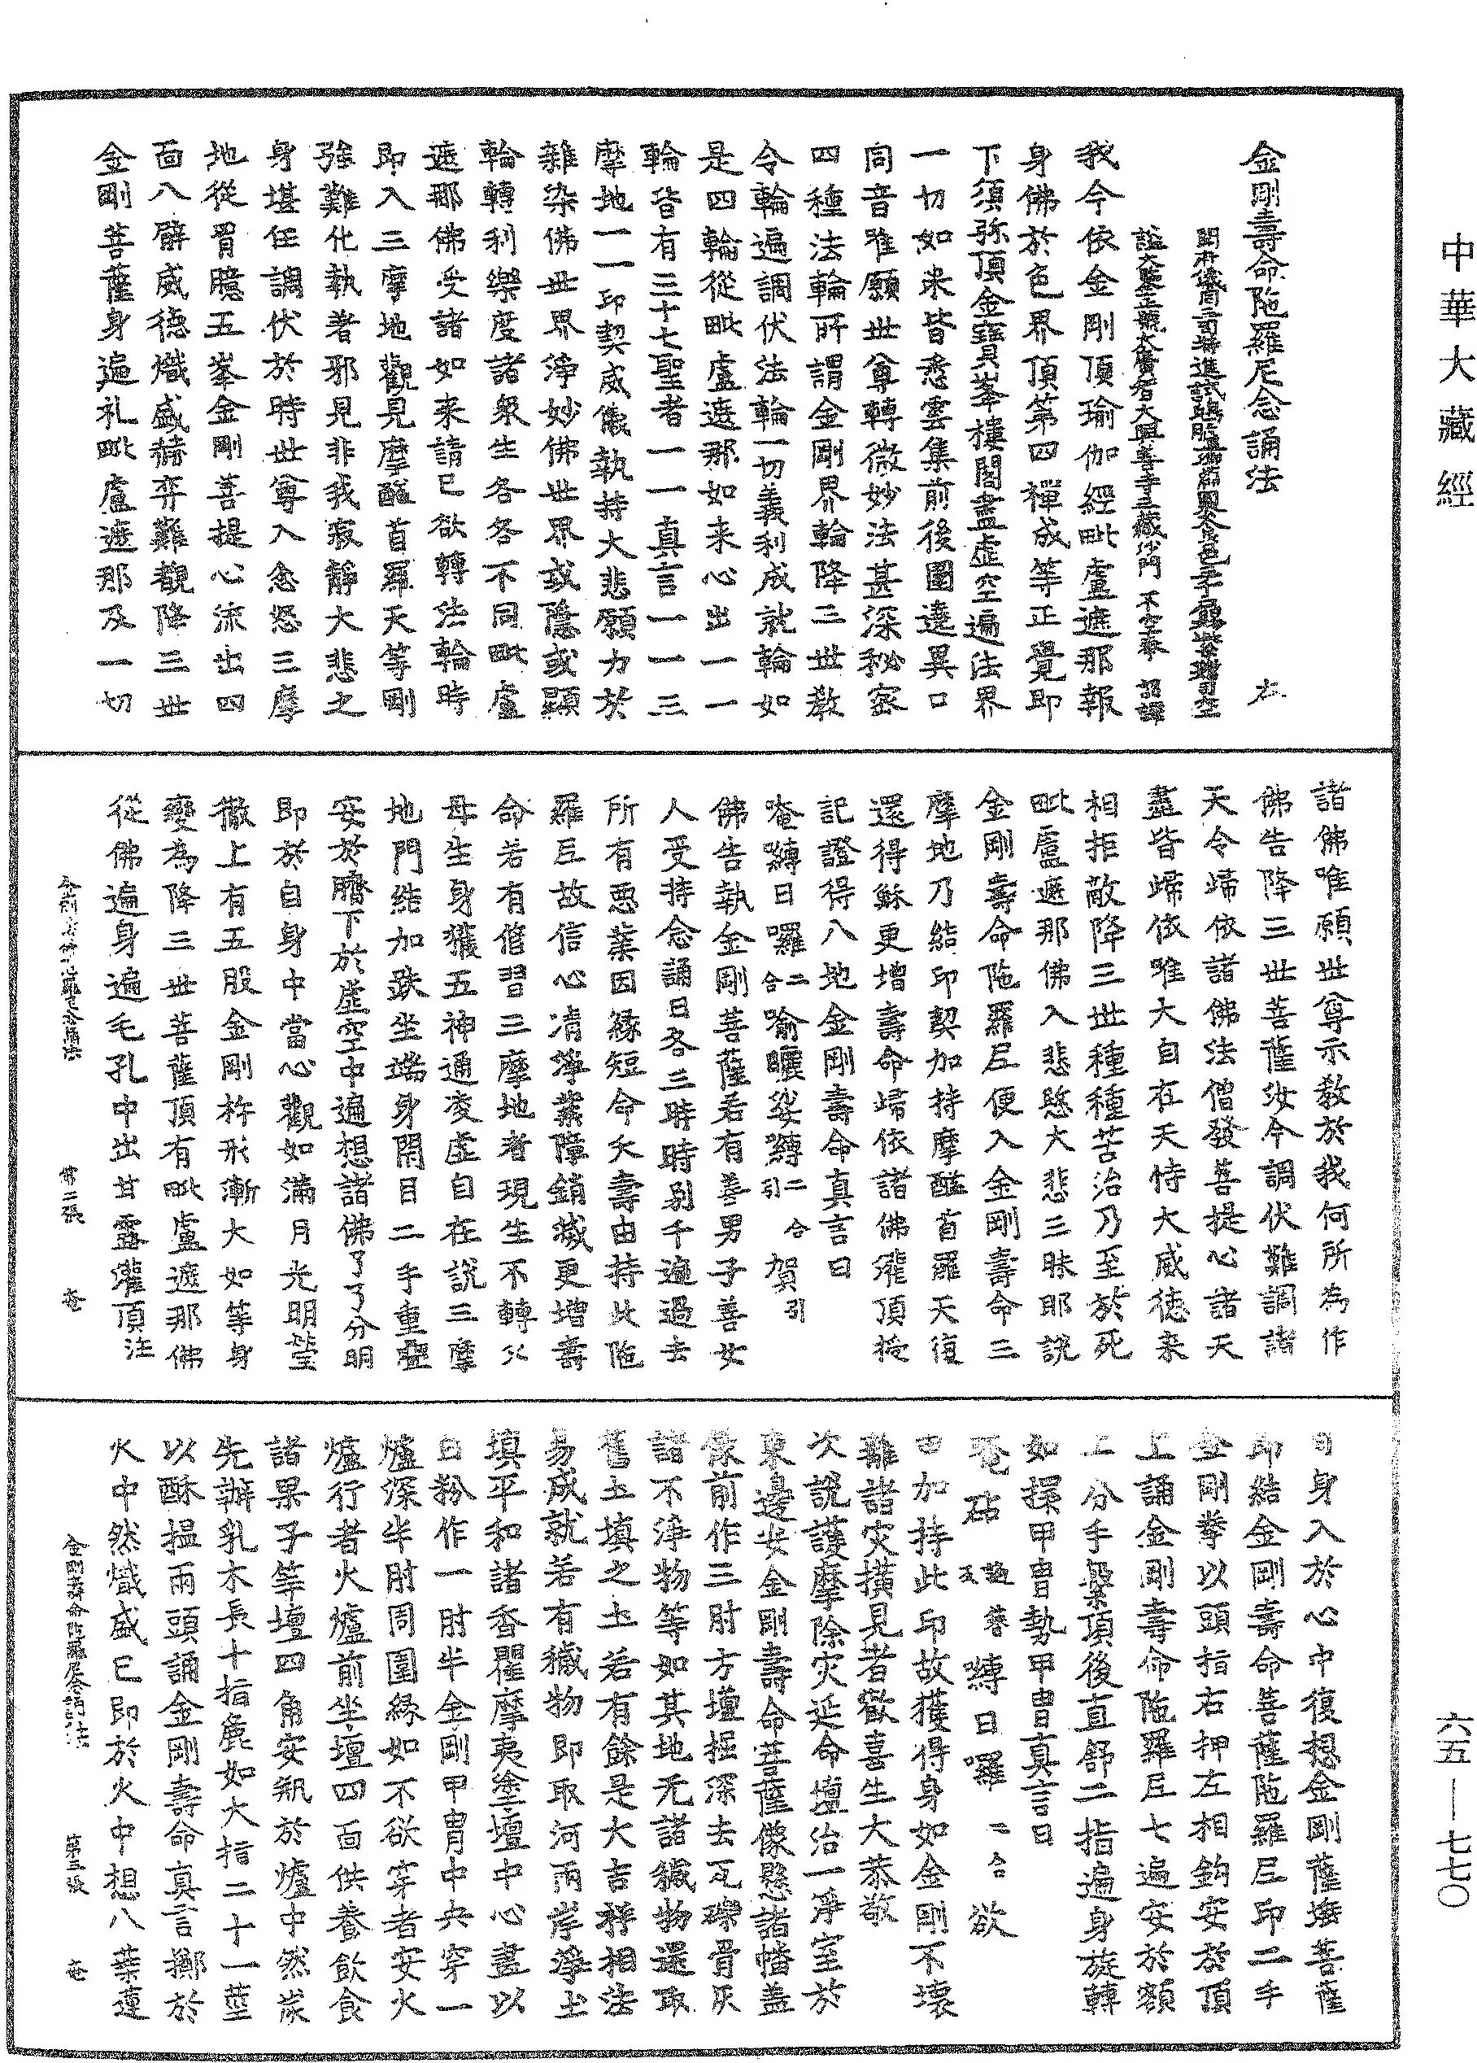 中華大藏經
金剛壽命陁羅尼念誦法
開府儀同三司特進試鴻臚卿肅國公食邑三千戶賜紫贈司空
謚大鑒正號大廣智大興善寺三藏沙門不空奉 詔譯
我今依金剛頂瑜伽經毗盧遮那報
身佛於色界頂第四禪成等正覺即
下須弥頂金寶峯樓閣盡虛空遍法界
一切如来皆悉雲集前後圍遶異口
同音唯願世尊轉微妙法甚深秘密
四種法輪所謂金剛界輪降三世教
令輪遍調伏法輪一切義利成就輪如
是四輪從毗盧遮那如来心出一一
輪皆有三十七聖者一一真言一一三
摩地一一印契威儀執持大悲願力於
雜染佛世界淨妙佛世界或隱或顯
輪轉利樂度諸衆生各各不同毗盧
遮那佛受諸如来請已欲轉法輪時
即入三摩地觀見摩醯首羅天等剛
強難化執著邪見非我寂靜大悲之
身堪任調伏於時世尊入忿怒三摩
地從胷臆五峯金剛菩提心流出四
面八臂威德熾盛赫弈難覩降三世
金剛菩薩身遍礼毗盧遮那及一切
諸佛唯願世尊示教於我何所為作
佛告降三世菩薩汝今調伏難調諸
天令歸依諸佛法僧發菩提心諸天
盡皆歸依唯大自在天恃大威德来
相拒敵降三世種種苦治乃至於死
毗盧遮那佛入悲愍大悲三昧耶説
金剛壽命陁羅尼便入金剛壽命三
摩地乃結印契加持摩醯首羅天復
還得穌更增壽命歸依諸佛灌頂授
記證得八地金剛壽命真言曰
唵嚩日囉二合喻曬娑嚩二合引賀引
佛告執金剛菩薩若有善男子善女
人受持念誦日各三時時别千遍過去
所有惡業因緣短命夭壽由持此陁
羅尼故信心清淨業障銷滅更增壽
命若有修習三摩地者現生不轉父
母生身獲五神通凌虛自在説三摩
地門結加趺坐端身閇目二手重疊
安於臍下於虛空中遍想諸佛了了分明
即於自身中當心觀如滿月光明瑩
徹上有五股金剛杵形漸大如等身
變為降三世菩薩頂有毗盧遮那佛
從佛遍身遍毛孔中出甘露灌頂注
金剛壽命陁羅尼念誦法 第二張 奄
自身入於心中復想金剛薩埵菩薩
即結金剛壽命菩薩陁羅尼印二手
金剛拳以頭指右押左相鈎安於頂
上誦金剛壽命陁羅尼七遍安於額
上分手繫頂後直舒二指遍身旋轉
如擐甲冑勢甲冑真言曰
唵砧 嚩日囉二合欲
由加持此印故獲得身如金剛不壞
離諸灾橫見者歡喜生大恭敬
次說護摩除灾延命壇治一淨室於
東邊安金剛壽命菩薩像懸諸幡盖
像前作三肘方壇掘深去瓦礫骨灰
諸不淨物等如其地无諸穢物還取
舊土填之土若有餘是大吉祥相法
易成就若有穢物即取河兩岸淨土
填平和諸香瞿摩夷塗壇中心畫以
白粉作一肘半金剛甲冑中央穿一
爐深半肘周圍緣如不欲穿者安火
爐行者火爐前坐壇四面供養飲食
諸果子等壇四角安瓶於爐中然炭
先辦乳木長十指麁如大指二十一莖
以酥揾兩頭誦金剛壽命真言擲於
火中然熾盛已即於火中想八葉蓮
金剛壽命陁羅尼念誦法 第三張 奄
六五—七七〇